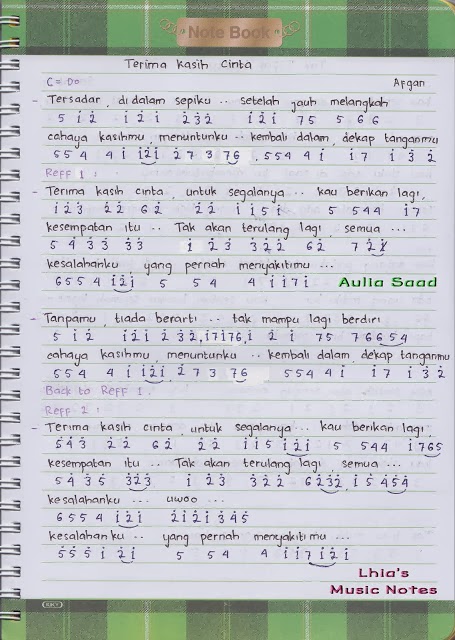 Note Book
Terima Kasih Cinta
C = Do Afgan
- Tersadar, di dalam sepiku .. setelah jauh melangkah
5 i̇ 2̇ i̇ 2̇ i̇ 2̇ 3̇ 2̇ i̇ 2̇ i̇ 7 5 5 6 6
cahaya kasihmu, menuntunku .. kembali dalam, dekap tanganmu
5 5 4 4 i̇ i̇2̇i̇ 2̇ 7 3 76 , 5 5 4 4 i̇ i̇ 7 i̇ 3̇ 2̇
Reff 1 :
- Terima kasih cinta, untuk segalanya .. kau berikan lagi,
i̇ 2̇ 3̇ 2̇ 2̇ 6 2̇ 2̇ 2̇ i̇ i̇ 5 i̇ 5 5 4 4 i̇ 7
kesempatan itu .. Tak akan terulang lagi, semua ...
5̇ 4̇ 3̇ 3̇ 3̇ 3̇ i̇ 2̇ 3̇ 3̇ 2̇ 2̇ 6 2̇ 7 2̇i̇
kesalahanku yang pernah menyakitimu ...
6 5 5 4 i̇2̇i̇ 5 5 4 4 i̇ i̇ 7 i̇
Aulia Saad
- Tanpamu, tiada berarti .. tak mampu lagi berdiri
5 i̇ 2̇ i̇ 2̇ i̇ 2̇ 3̇ 2̇, i̇ 7 i̇ 7 6, i̇ 2̇ i̇ 7 5 7 6 6 5 4
cahaya kasihmu, menuntunku .. kembali dalam, dekap tanganmu
5 5 4 4 i̇ i̇2̇i̇, 2̇ 7 3 76 5 5 4 4 i̇ i̇ 7 i̇ 3̇ 2̇
Back to Reff 1 .
Reff 2 :
- Terima kasih cinta, untuk segalanya ... kau berikan lagi
5̇ 4̇ 3̇ 2̇ 2̇ 6 2̇ 2̇ 2̇ i̇ i̇ 5 i̇2̇i̇ 5 5 4 4 i̇ 765
kesempatan itu .. Tak akan terulang lagi, semua ...
5̇ 4̇ 3̇ 5̇ 3̇2̇3̇ i̇ 2̇ 3̇ 3̇ 2̇ 2̇ 6 2̇3̇2̇, i̇ 5̇ 4̇5̇4̇
kesalahanku ... uwoo ...
6 5 5 4 i̇2̇i̇ 2̇ i̇ 2̇ i̇ 3̇ 4̇ 5̇
kesalahanku .. yang pernah menyakitimu ...
5 5 5 i̇ 2̇i̇ 5 5 4 4 i̇ i̇7i̇2̇i̇
Lhia's
Music Notes
SKY